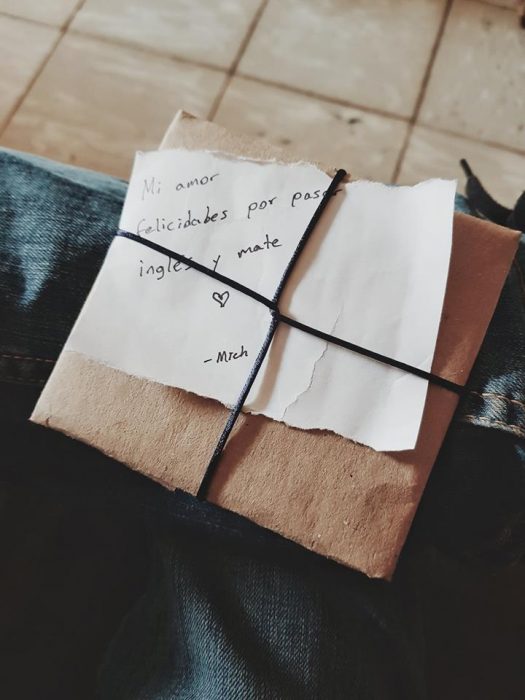 Mi amor
felicidades por pasar
inglés y mate
♡
-Mich